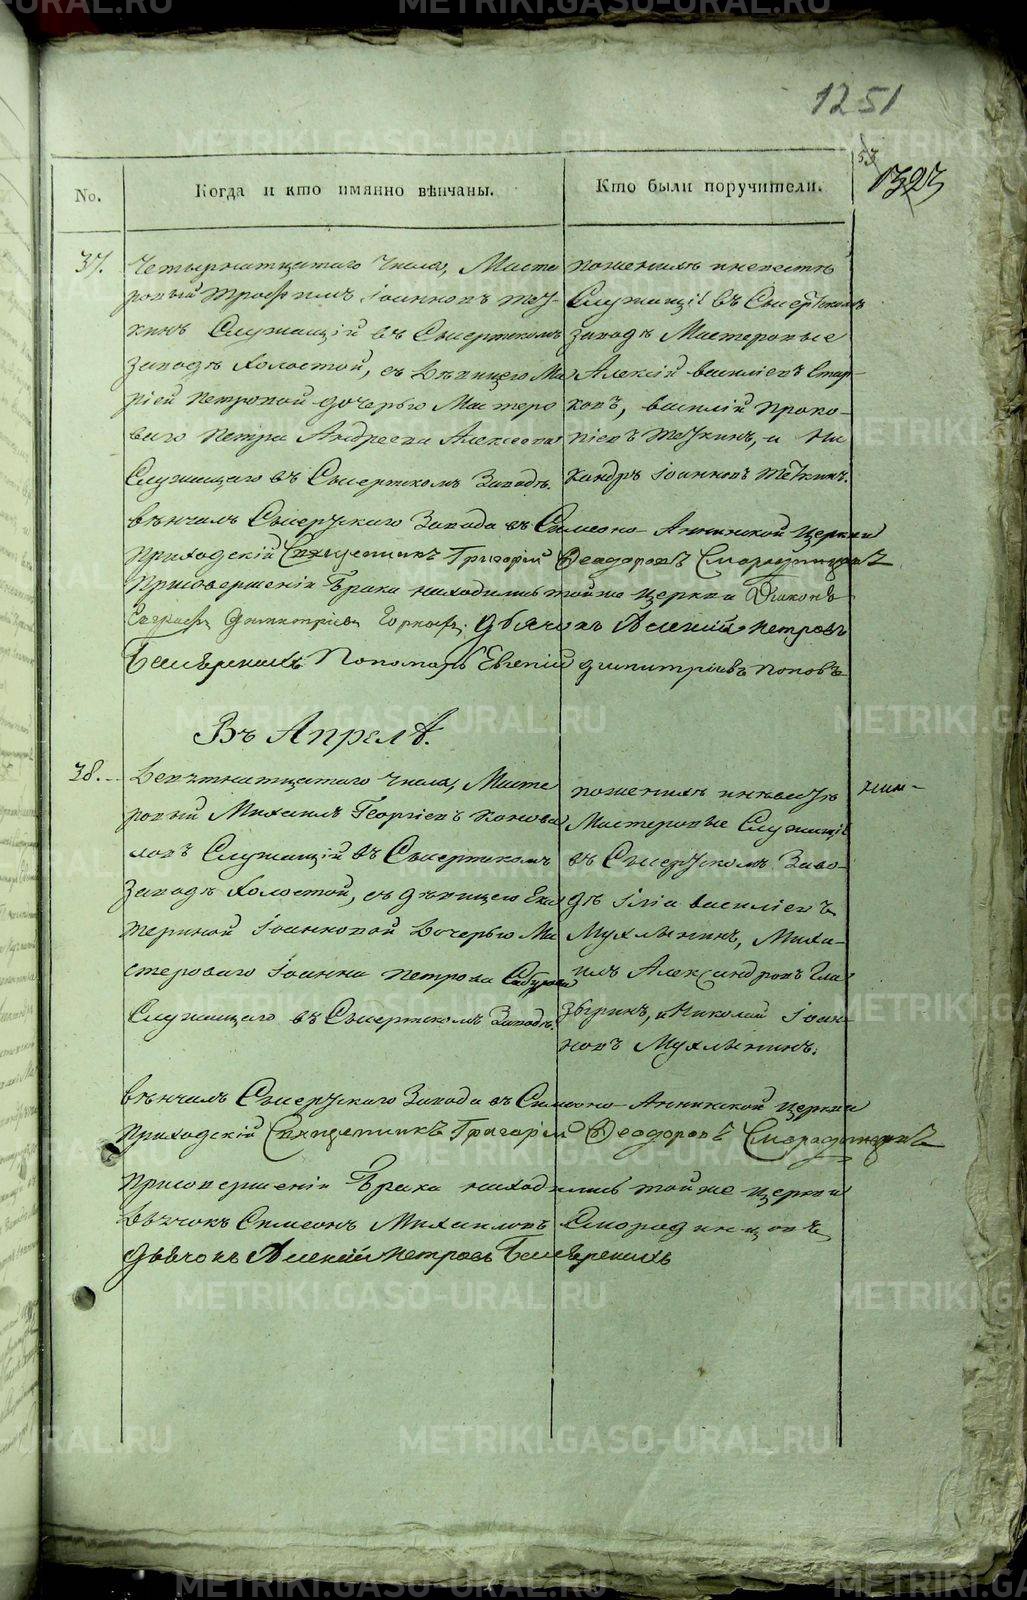 1251
53
1323
No.
Когда и кто имянно вѣнчаны.
Кто были поручители.
37.
Четырнатцатаго Числа, Масте
ровый Трофимъ Іоанновъ Теу-
кинъ Служащій въ Сысертскомъ
Заводѣ Холостой, съ Дѣвицею Ма
ріей Петровой дочерью Мастеро
ваго Петра Андреева Алексеева
Служащаго въ Сысертскомъ Заводѣ.
по женихѣ и невестѣ
Служащіе въ Сысертскомъ
Заводѣ Мастеровые
Алексій Василіевъ Стар-
ковъ, Василій Проко-
піевъ Теукинъ, и Ни
кандръ Іоанновъ Теукинъ.
вѣнчалъ Сысерскаго Завода въ Симеоно-Аннинской Церкви
Приходскій Священникъ Григорій Феодоровъ Смородинцовъ
При совершеніи Брака находились той же Церкви Діаконъ
Димитріевъ дьячокъ Алексій Петровъ
Пономарь Евгеній Димитріевъ Поповъ
Въ Апрелѣ.
38.
Девятнатцатаго Числа, Масте
ровый Михаилъ Георгіевъ Конова
ловъ Служащій въ Сысертскомъ
Заводѣ Холостой, съ дѣвицею Ека
териной Іоанновой Дочерью Ма
стероваго Іоанна Петрова
Служащаго въ Сысертскомъ Заводѣ.
по женихѣ и невестѣ
Мастеровые Служащіе
въ Сысерскомъ Заво-
дѣ Іліа Василіевъ
Мухлынинъ, Миха-
илъ Александровъ Гла
зыринъ, и Николай Іоан-
новъ Мухлынинъ.
вѣнчалъ Сысерскаго Завода въ Симеоно-Аннинской Церкви
Приходскій Священникъ Григорій Феодоровъ Смородинцовъ
При совершеніи Брака находились той же Церкви
Дьячокъ Симеонъ Михаиловъ Смородинцовъ
дьячокъ Алексій Петровъ
METRIKI.GASO-URAL.RU